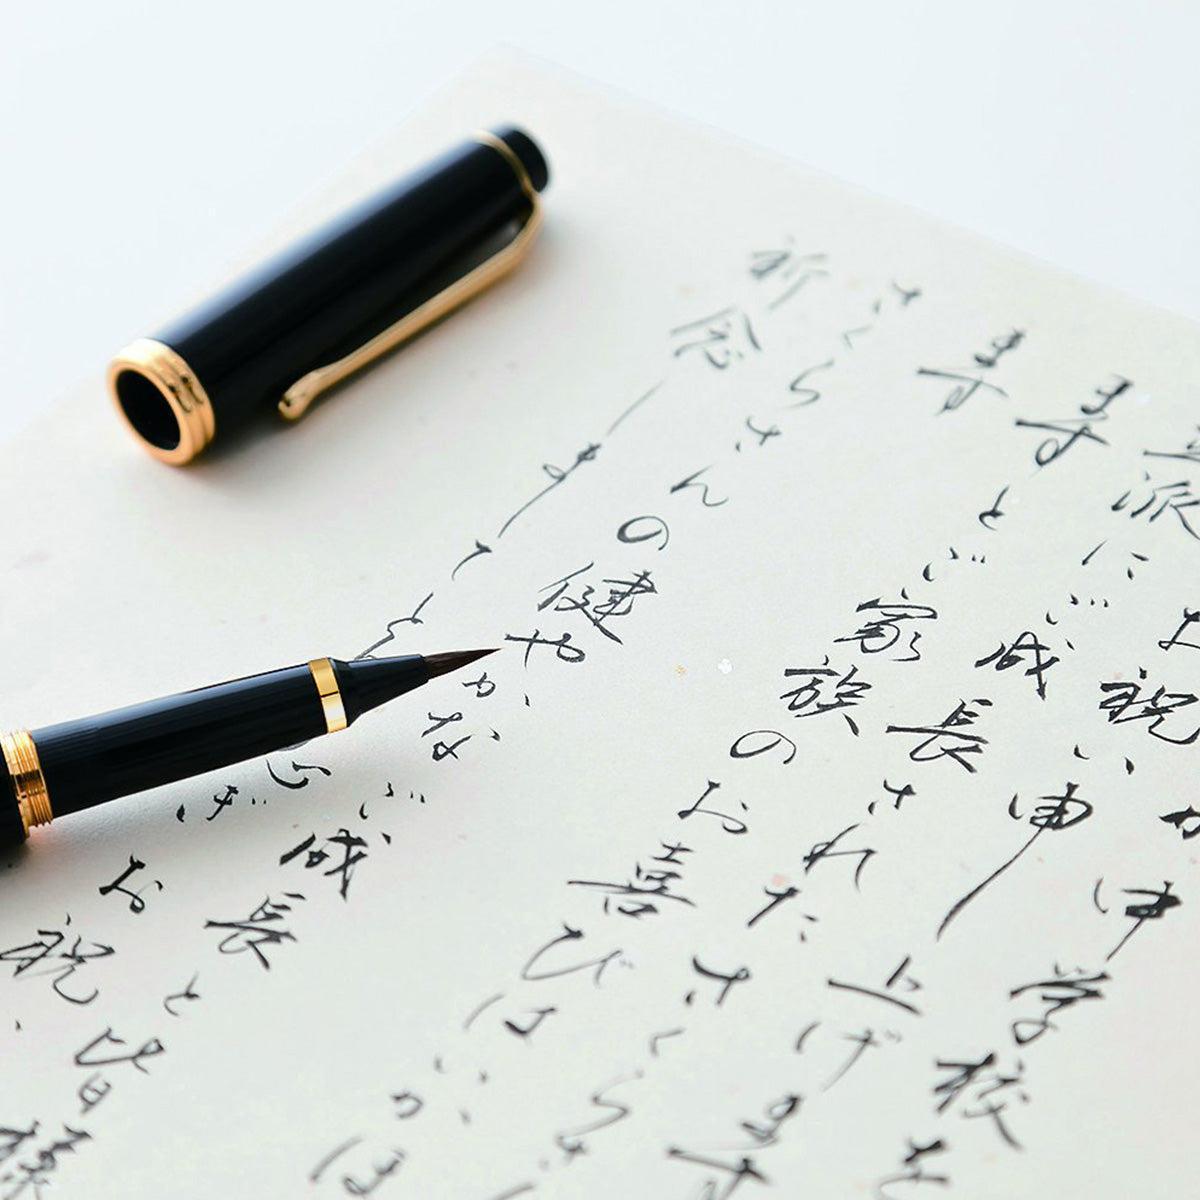 中学校を
お祝い申し上げます
立派にご成長されたさくらさ
ますとご家族のお喜びはいかほ
ます
さくらさんの健やかなご成長と皆様
祈念しまして お祝